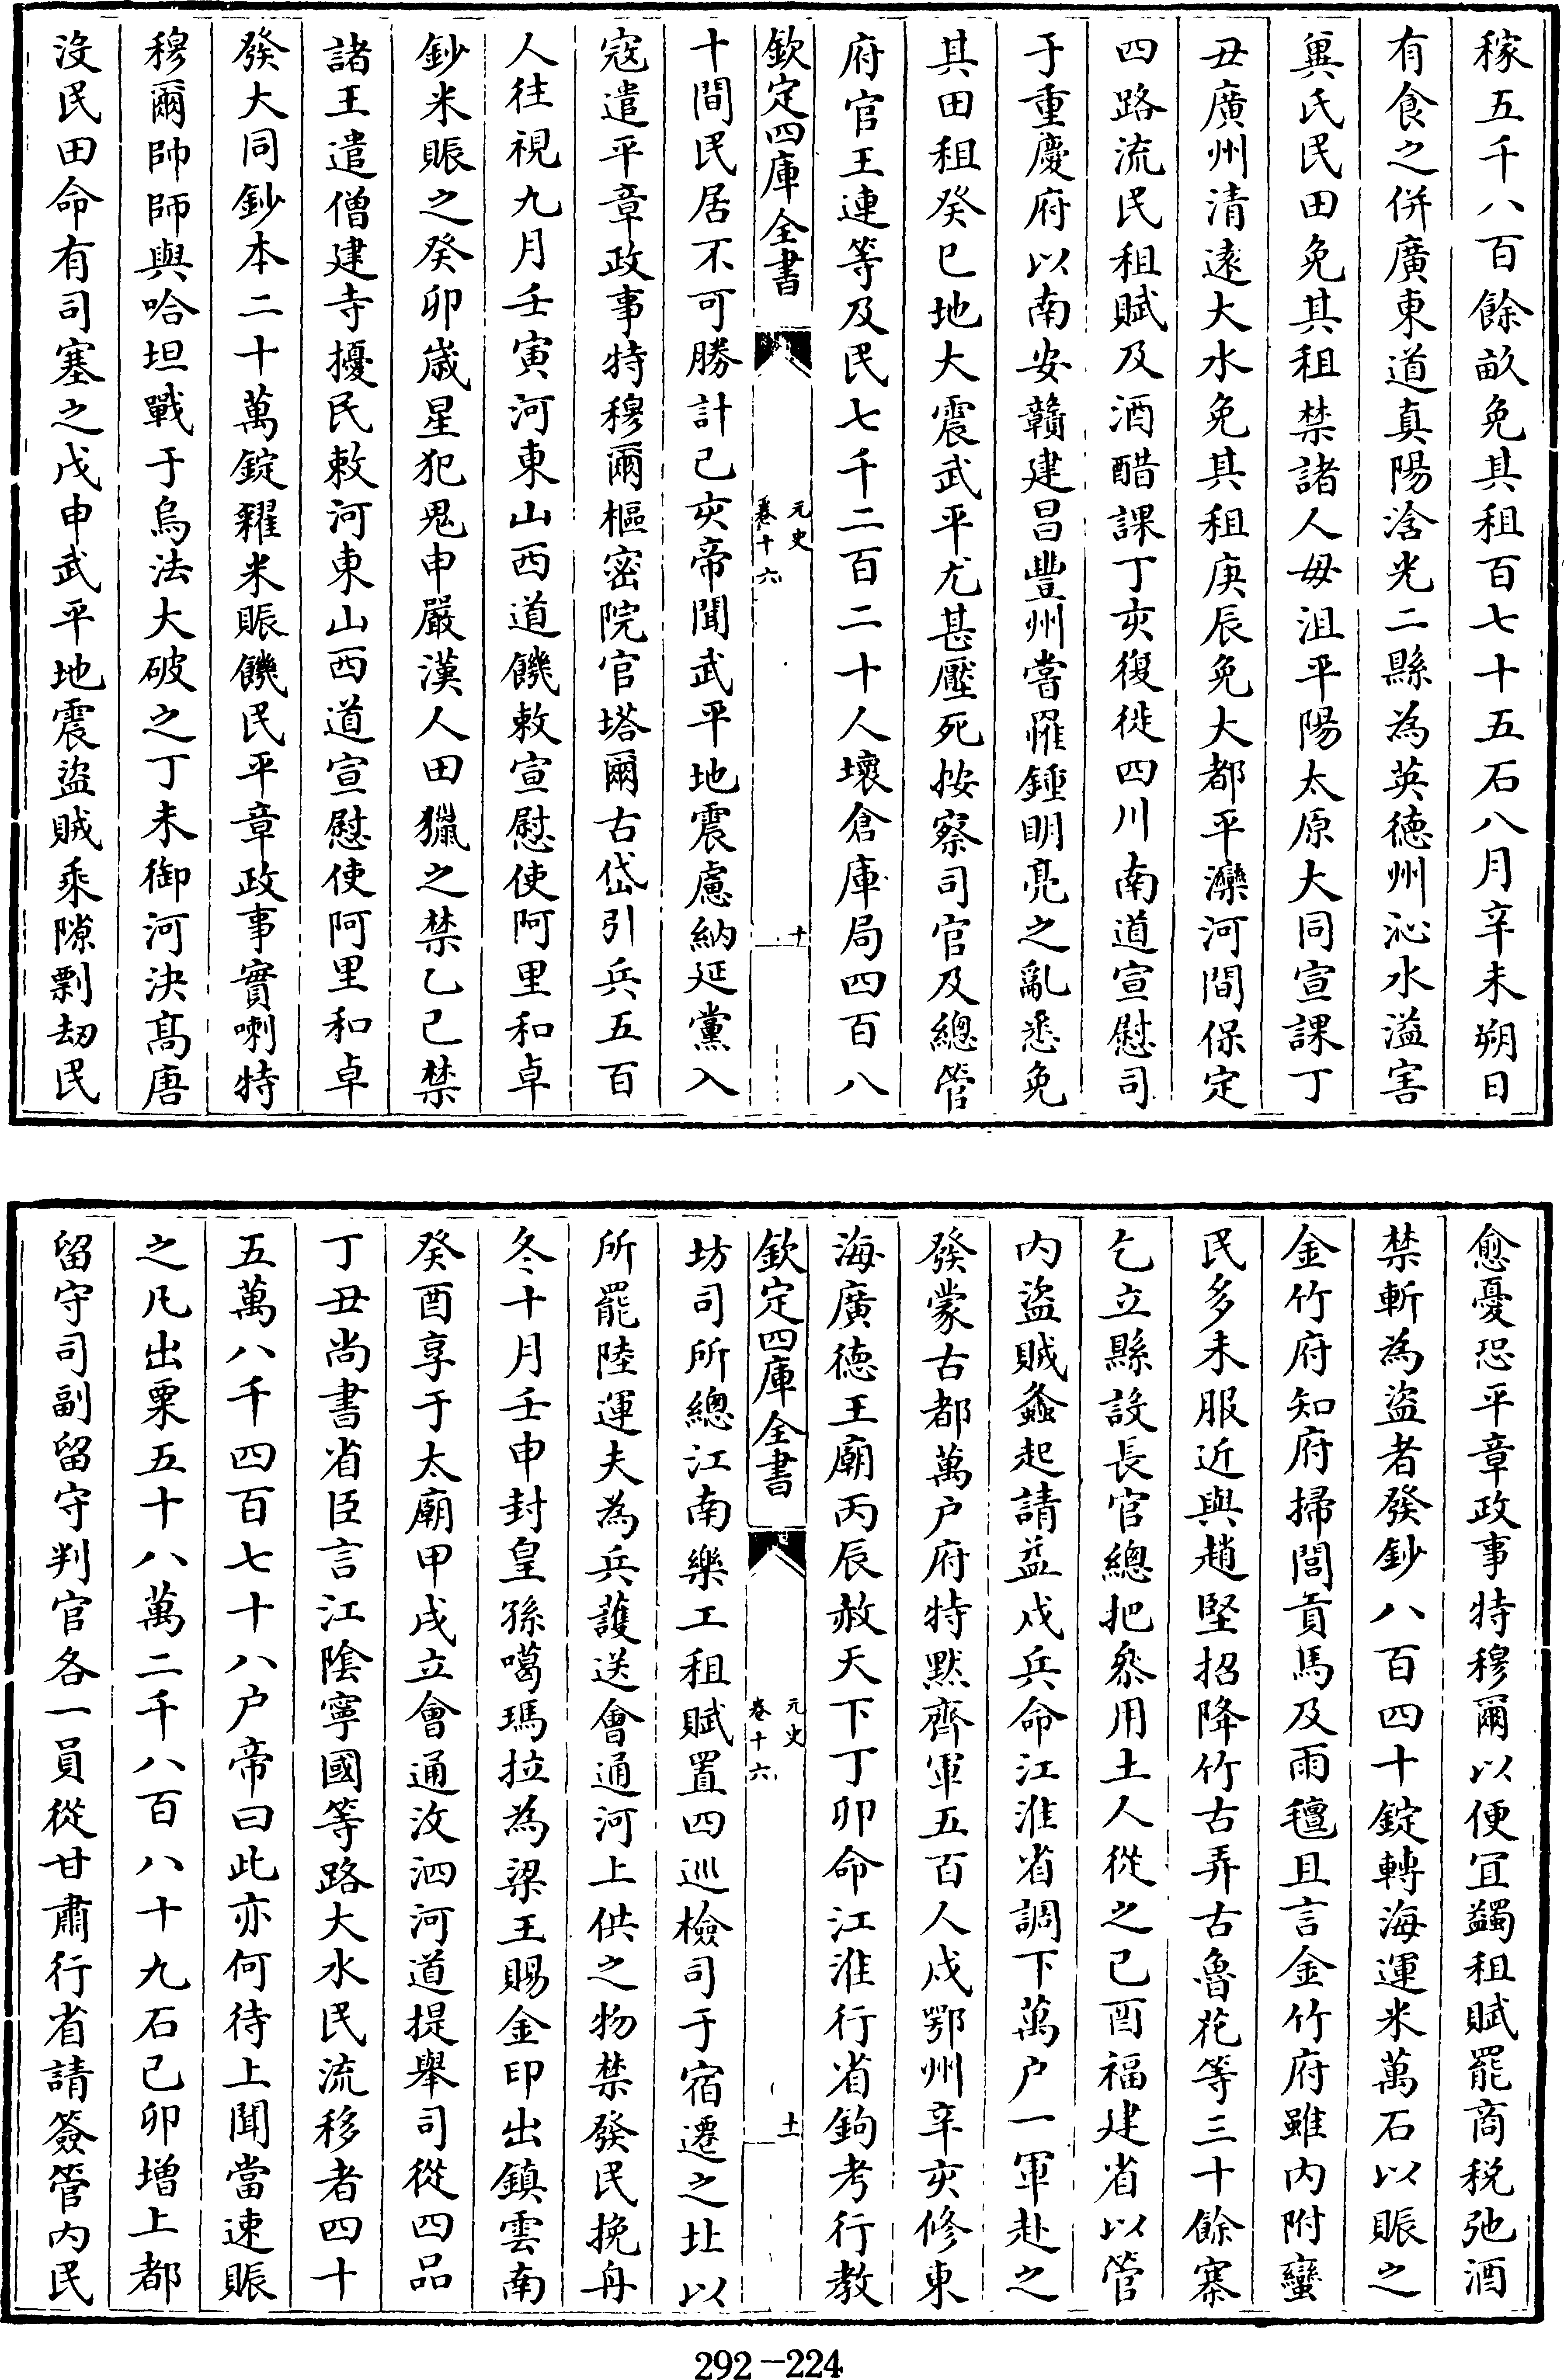 稼五千八百餘畝免其租百七十五石八月辛未朔日
有食之併廣東道真陽浛光二縣為英徳州沁水溢害
兾氏民田免其租禁諸人毋沮平陽太原大同宣課丁
丑廣州清逺大水免其租庚辰免大都平灤河間保定
四路流民租賦及酒醋課丁亥復徙四川南道宣慰司
于重慶府以南安贛建昌豐州嘗罹鍾明亮之亂悉免
其田租癸巳地大震武平尤甚壓死按察司官及總管
府官王連等及民七千二百二十人壞倉庫局四百八
欽定四庫全書
元史
卷十六
十
十間民居不可勝計己亥帝聞武平地震慮納延黨入
寇遣平章政事特穆爾樞密院官塔爾古岱引兵五百
人往視九月壬寅河東山西道饑敕宣慰使阿里和卓
鈔米賑之癸卯嵗星犯鬼申嚴漢人田獵之禁乙已禁
諸王遣僧建寺擾民敕河東山西道宣慰使阿里和卓
發大同鈔本二十萬錠糴米賑饑民平章政事實喇特
穆爾帥師與哈坦戰于烏法大破之丁未御河決髙唐
沒民田命有司塞之戊申武平地震盜賊乘隙剽刼民
愈憂恐平章政事特穆爾以便宜蠲租賦罷商稅弛酒
禁斬為盜者發鈔八百四十錠轉海運米萬石以賑之
金竹府知府掃閭貢馬及雨氊且言金竹府雖内附蠻
民多未服近與趙堅招降竹古弄古魯花等三十餘寨
乞立縣設長官總把叅用土人從之己酉福建省以管
内盜賊蠭起請益戍兵命江淮省調下萬户一軍赴之
發蒙古都萬户府特默齊軍五百人戍鄂州辛亥修東
海廣徳王廟丙辰赦天下丁卯命江淮行省鉤考行教
欽定四庫全書
元史
卷十六
十一
坊司所總江南樂工租賦置四巡檢司于宿遷之北以
所罷陸運夫為兵䕶送會通河上供之物禁發民挽舟
冬十月壬申封皇孫噶瑪拉為梁王賜金印出鎮雲南
癸酉享于太廟甲戌立會通汶泗河道提舉司從四品
丁丑尚書省臣言江陰寧國等路大水民流移者四十
五萬八千四百七十八户帝曰此亦何待上聞當速賑
之凡出粟五十八萬二千八百八十九石己卯増上都
留守司副留守判官各一員從甘肅行省請簽管内民
292-224